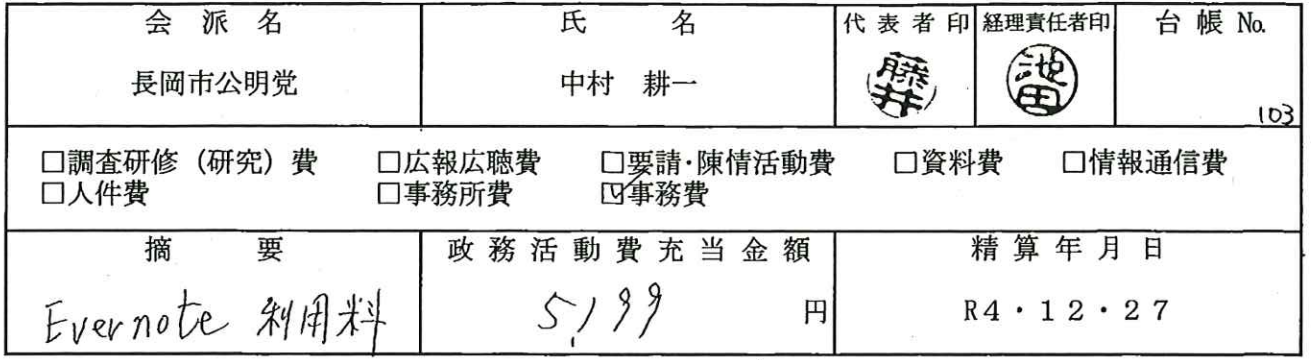 会派名 氏名 代表者印 経理責任者印 台帳No.
長岡市公明党 中村 耕一 藤井 池田 103
□調査研修（研究）費 □広報広聴費 □要請・陳情活動費 □資料費 □情報通信費
□人件費 □事務所費 ☑事務費
摘要 政務活動費充当金額 精算年月日
Evernote 利用料 5,199 円 R4・12・27